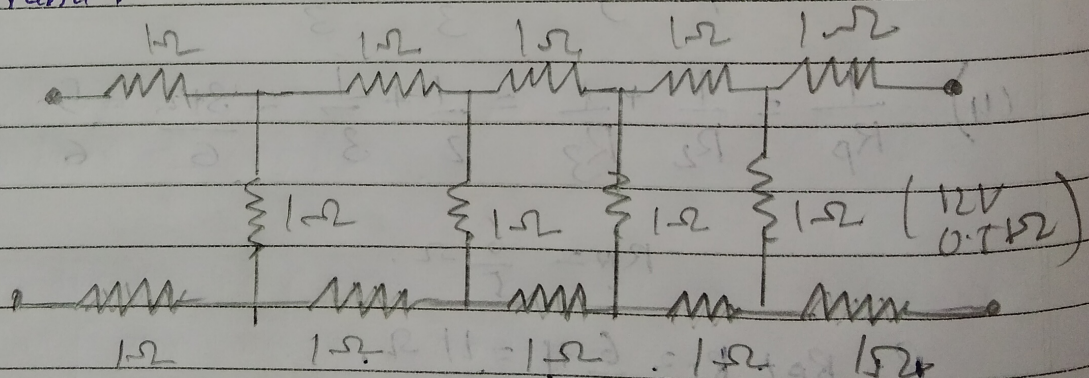 1Ω 1Ω 1Ω 1Ω 1Ω
1Ω 1Ω 1Ω 1Ω (12V
1Ω 1Ω 1Ω 1Ω 1Ω